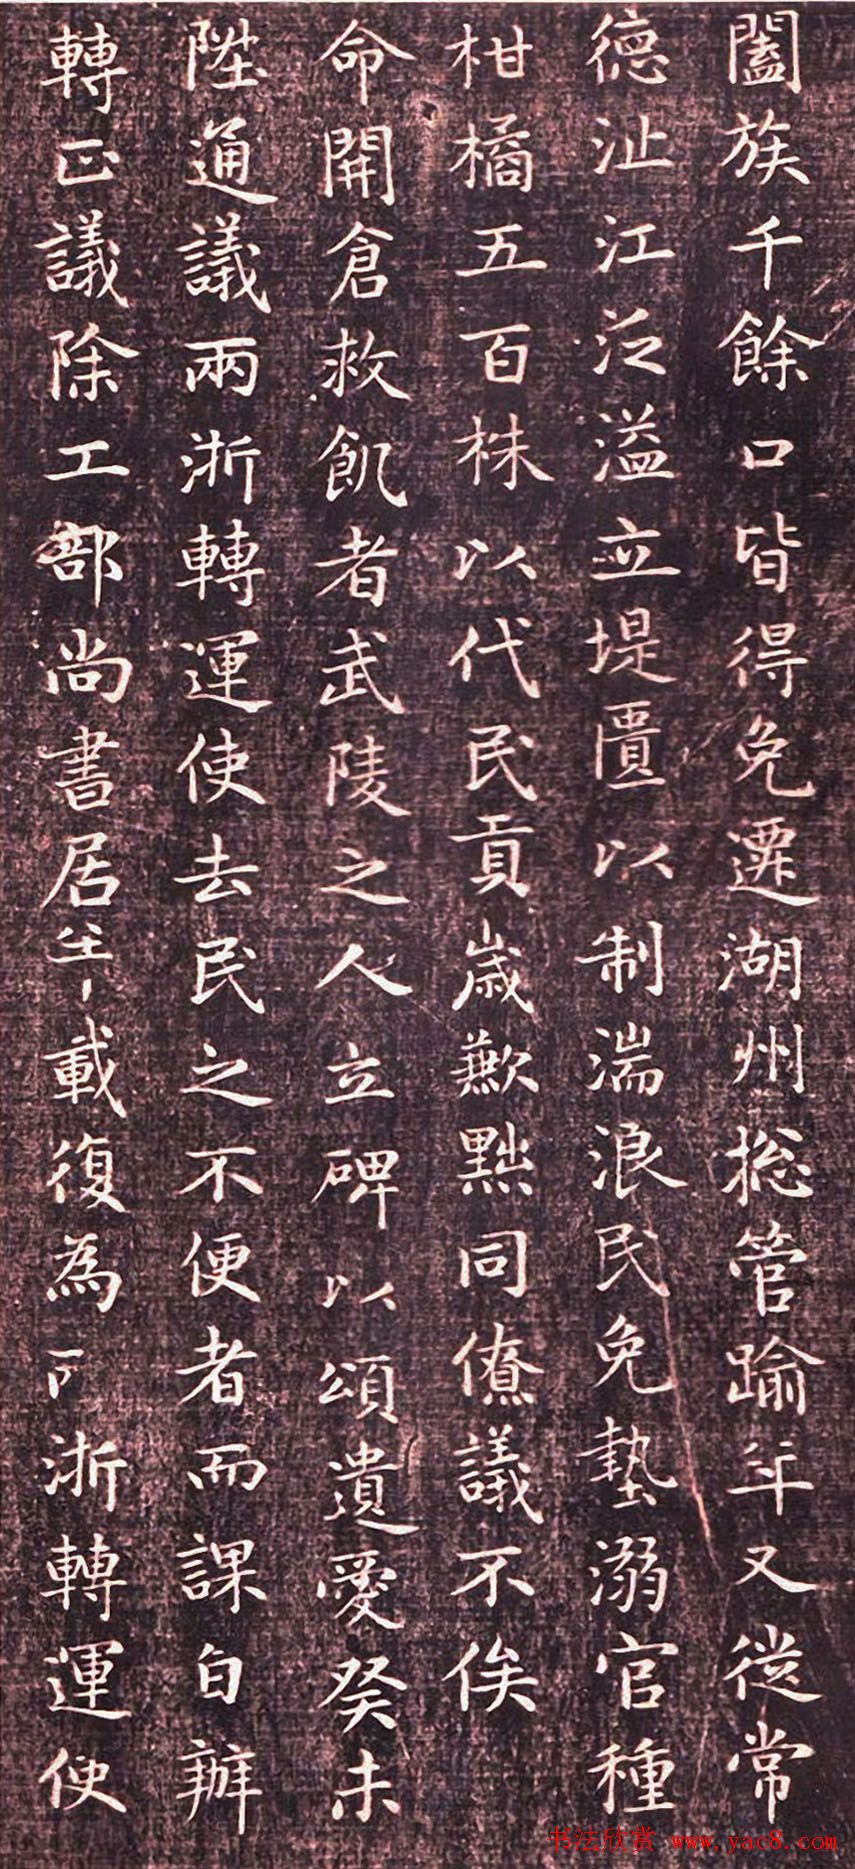 闔族千餘口皆得免遷湖州摠管踰年又從常
德沚江泛溢立堤匱以制湍浪民免墊溺官種
柑橘五百株以代民貢歲歉黜同僚議不俟
命開倉救飢者武陵之人立碑以頌遺愛癸未
陞通議兩浙轉運使去民之不便者而課自辦
轉正議除工部尚書居半載復為兩浙轉運使
书法欣赏 www.yac8.com